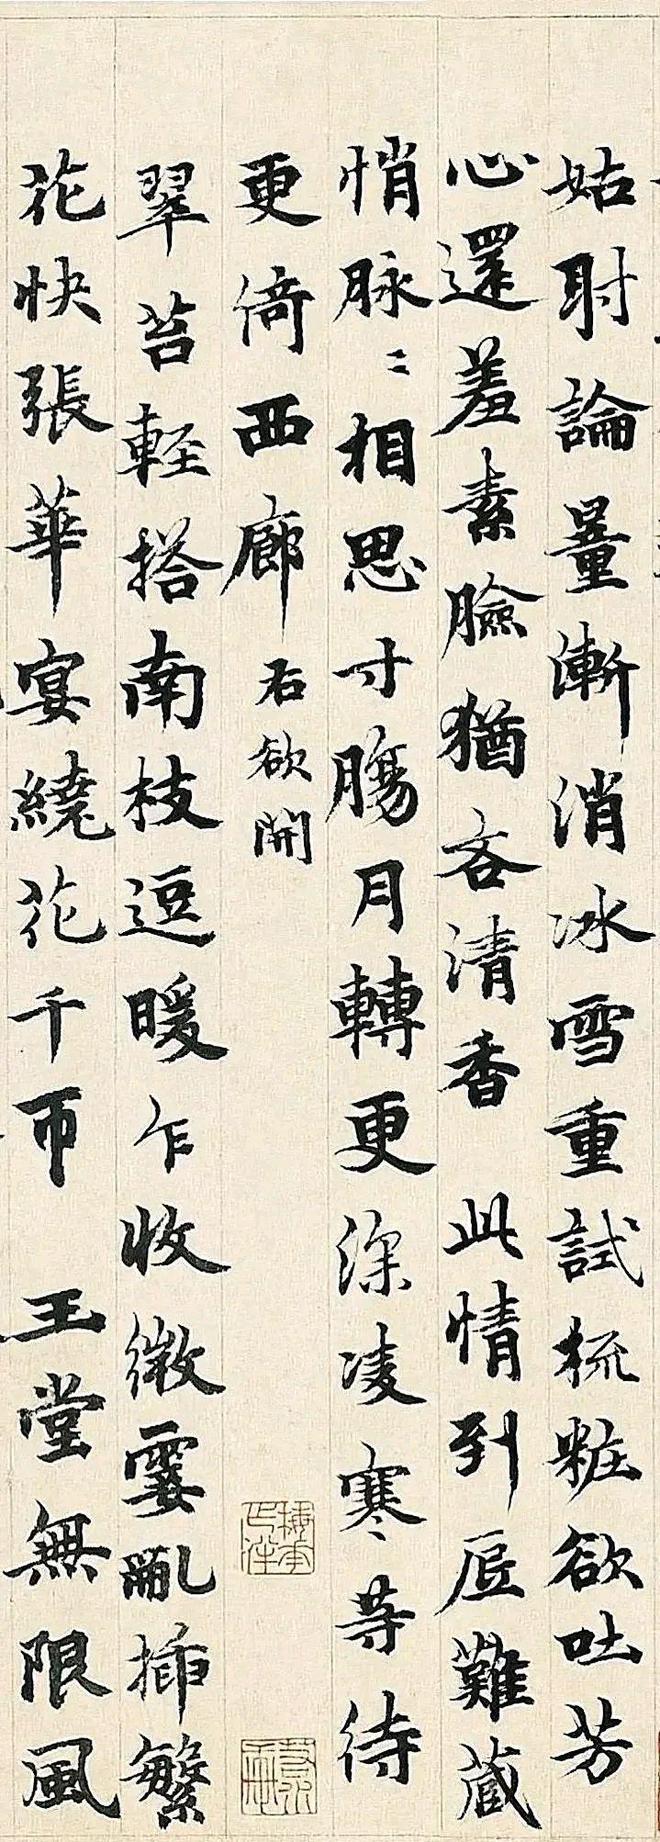 姑射論量漸消冰雪重試梳粧欲吐芳
心還羞素臉猶吝清香 此情到㡳難藏
悄脉〻相思寸腸月轉更深凌寒等待
更倚西廊 右欲開
翠苔輕搭南枝逗暖乍收微霎亂插繁
花快張華宴繞花千帀 玉堂無限風